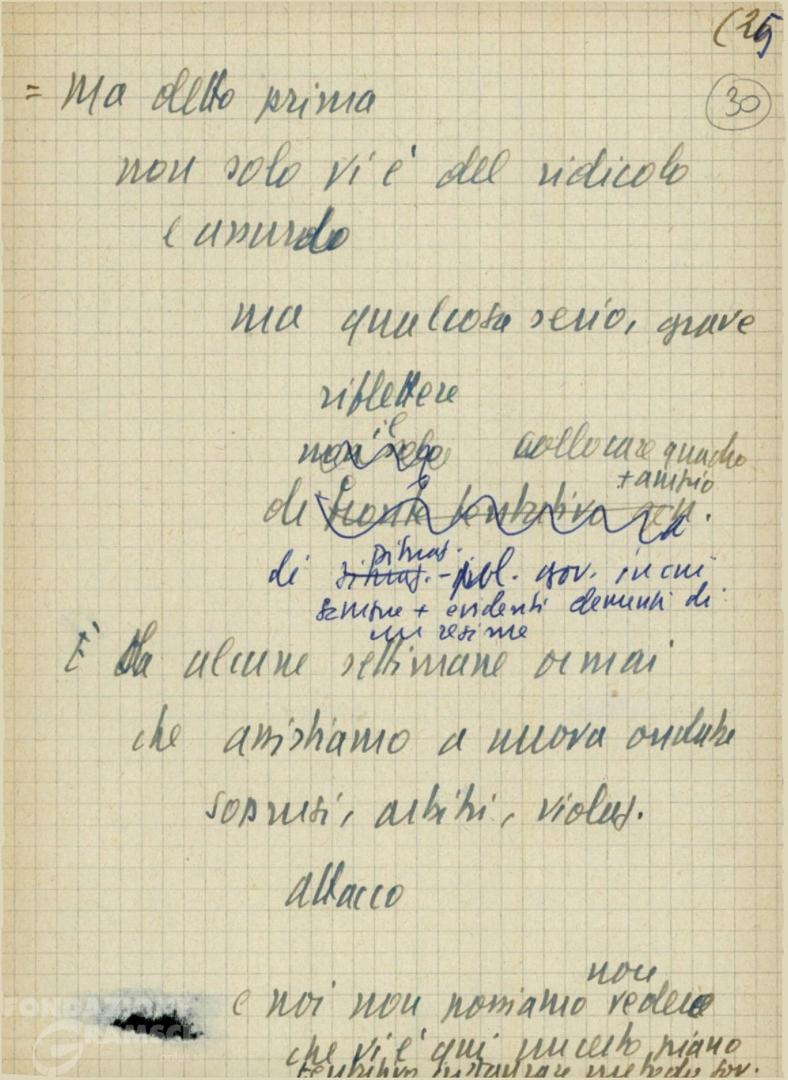 (25
30
= Ma detto prima
non solo vi è del ridicolo
e assurdo
ma qualcosa serio, grave
riflettere
non solo collocare quadro
+ ampio
di fronte tentativo
di situaz. - pol. gov. in cui
sempre + evidenti elementi di
un regime
È da alcune settimane ormai
che assistiamo a nuova ondata
soprusi, arbitri, violaz.
attacco
non
e noi non possiamo vedere
che vi è qui un certo piano
tentativo instaurare metodo gov.
FONDAZIONE
GRAMSCI